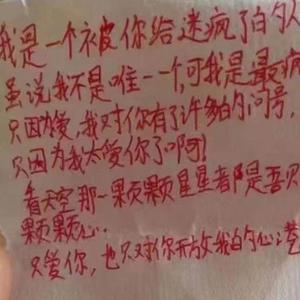 我是一个被你给迷疯了的人
虽说我不是唯一一个,可我是最疯
只因为爱,我对你有了许多的问号,
只因为我太爱你了啊!
看天空那一颗颗星星都是吾
颗颗心.
只爱你,也只对你开放我的心港